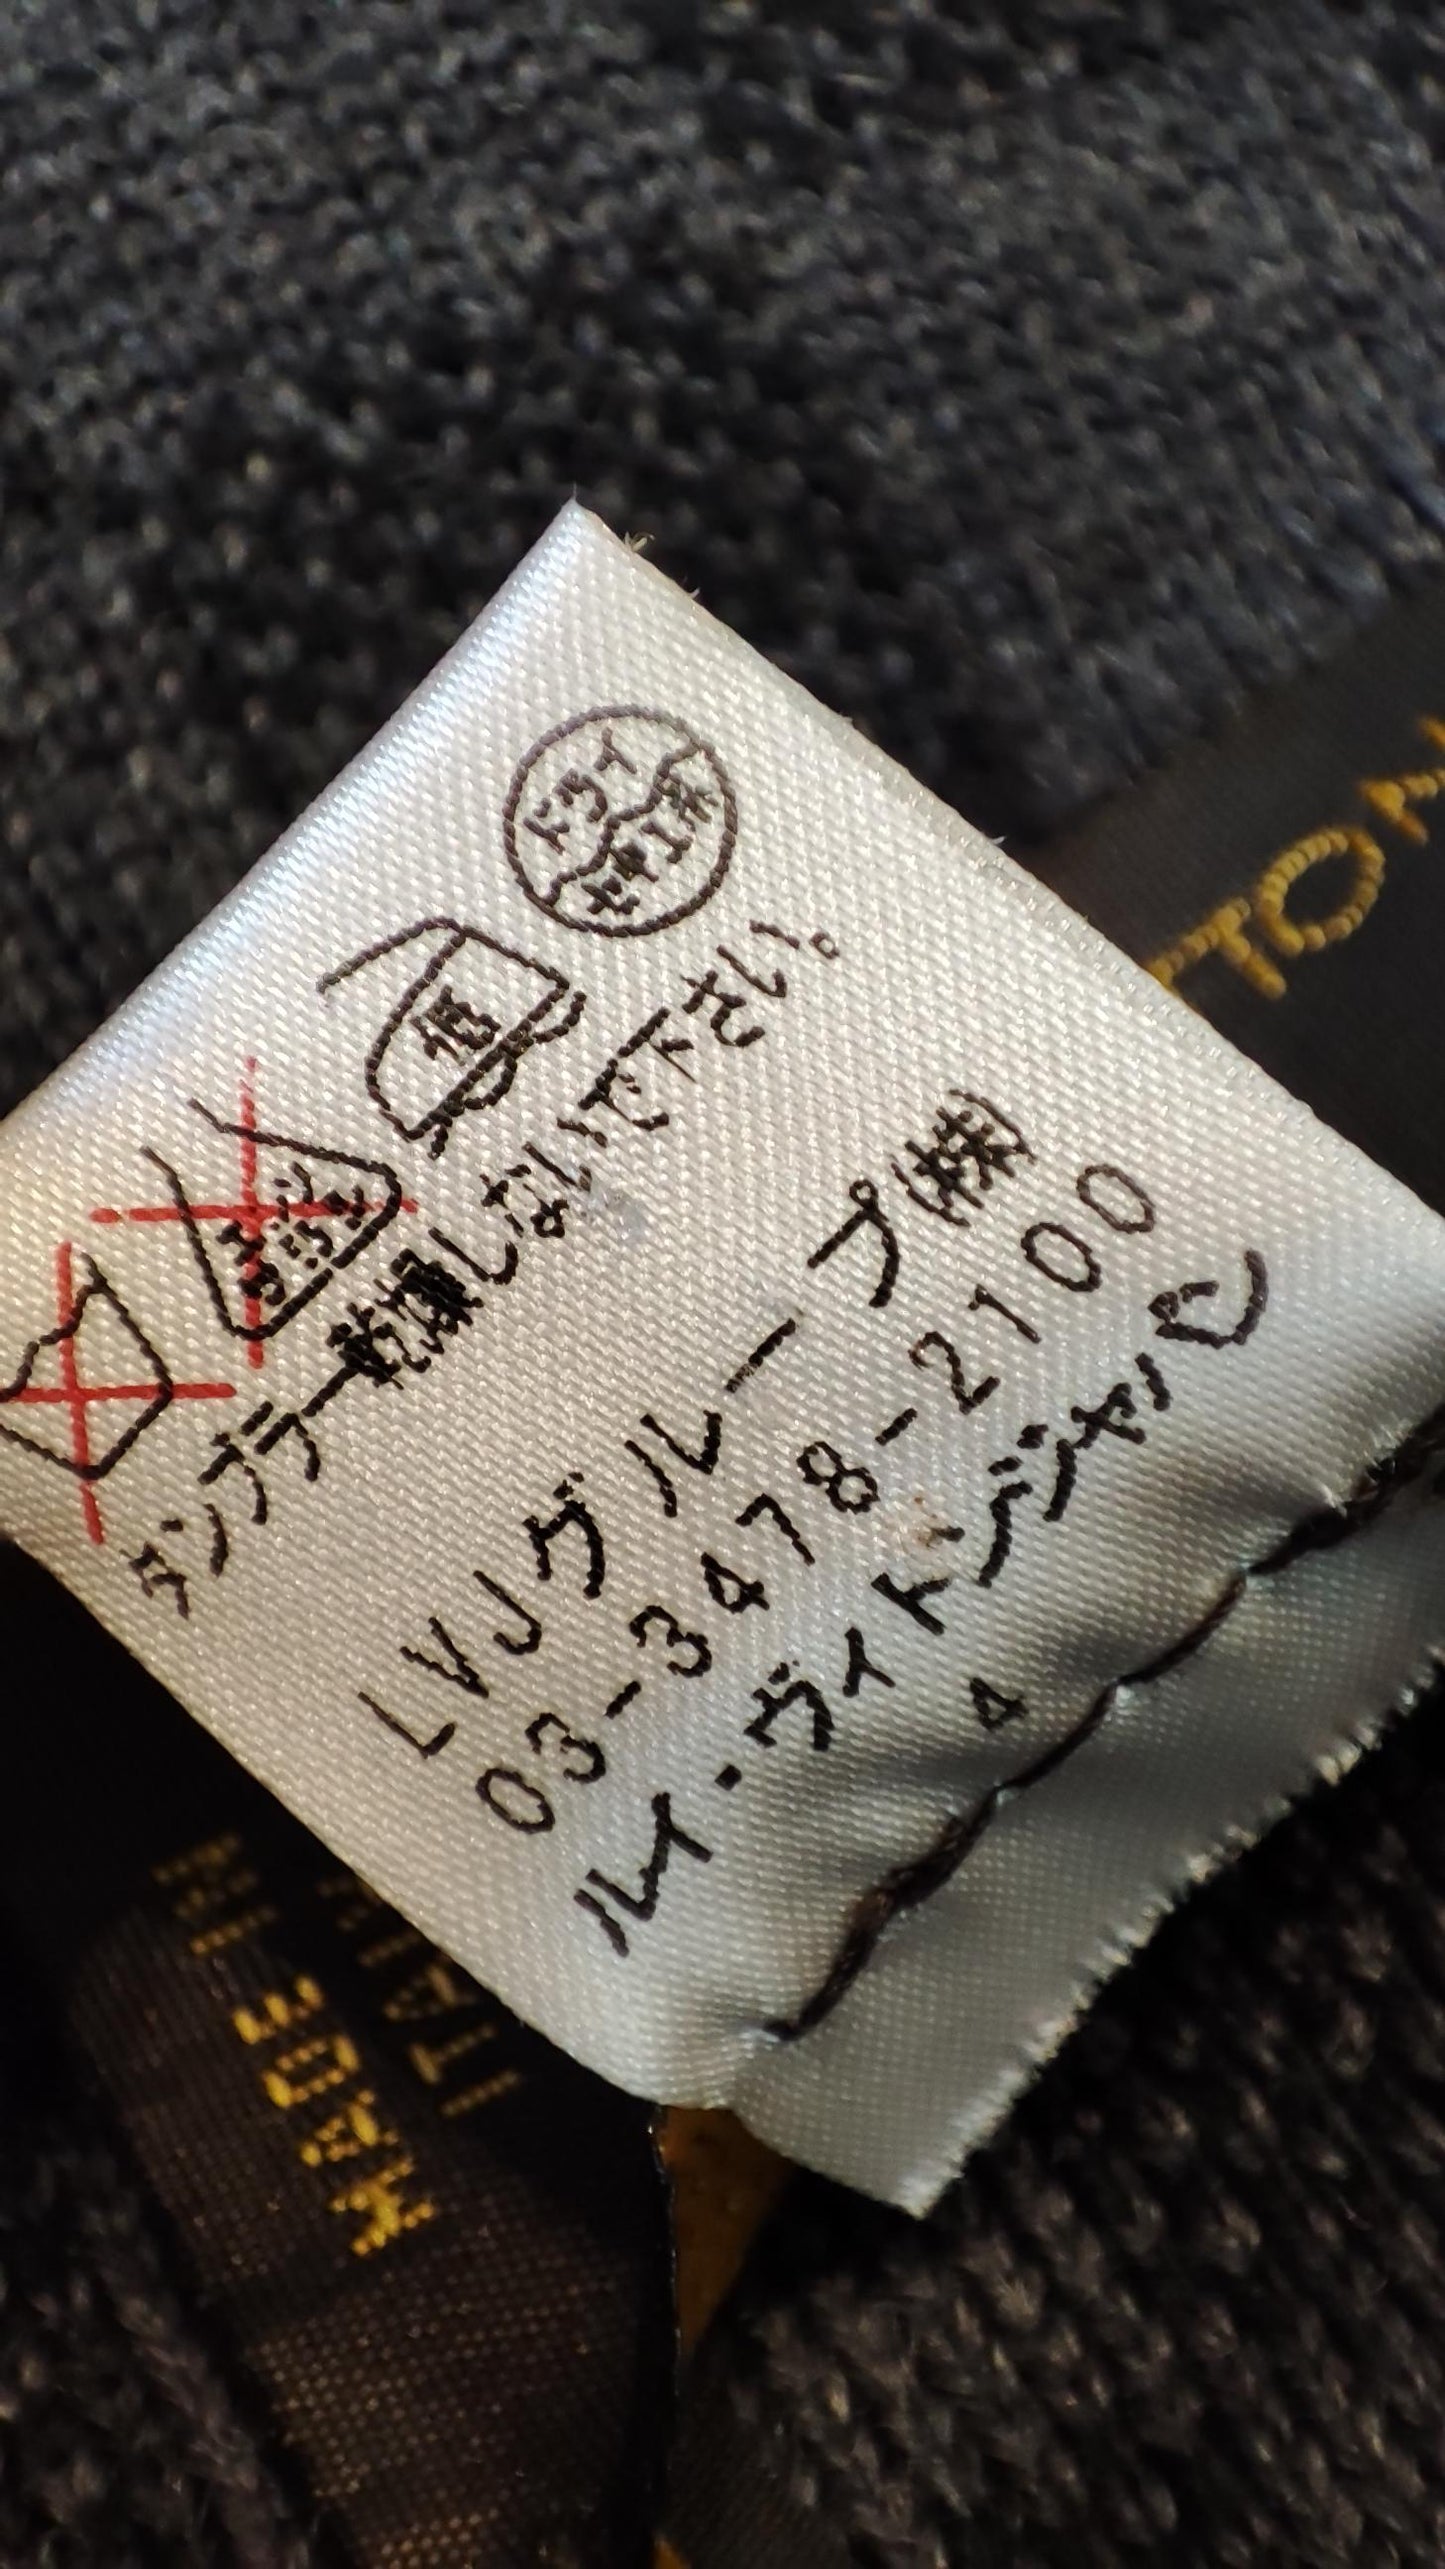 ドライ
セキユ系
低
エンソ
サラシ
タンブラー乾燥しないで下さい。
LVJグループ㈱
03-3478-2100
ルイ・ヴィトンジャパン
4
TON
MADE IN
ITALY